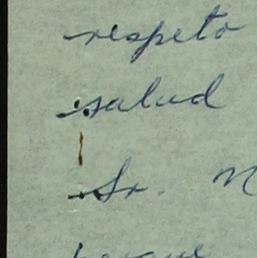 respeto
salud
Sr. M